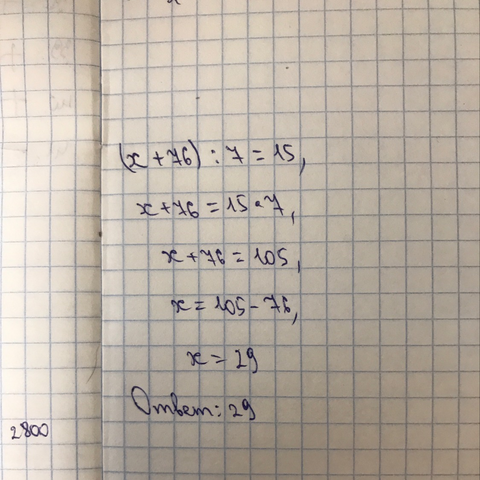 (x + 76) : 7 = 15,
x + 76 = 15 · 7,
x + 76 = 105,
x = 105 - 76,
x = 29
Ответ: 29
2800